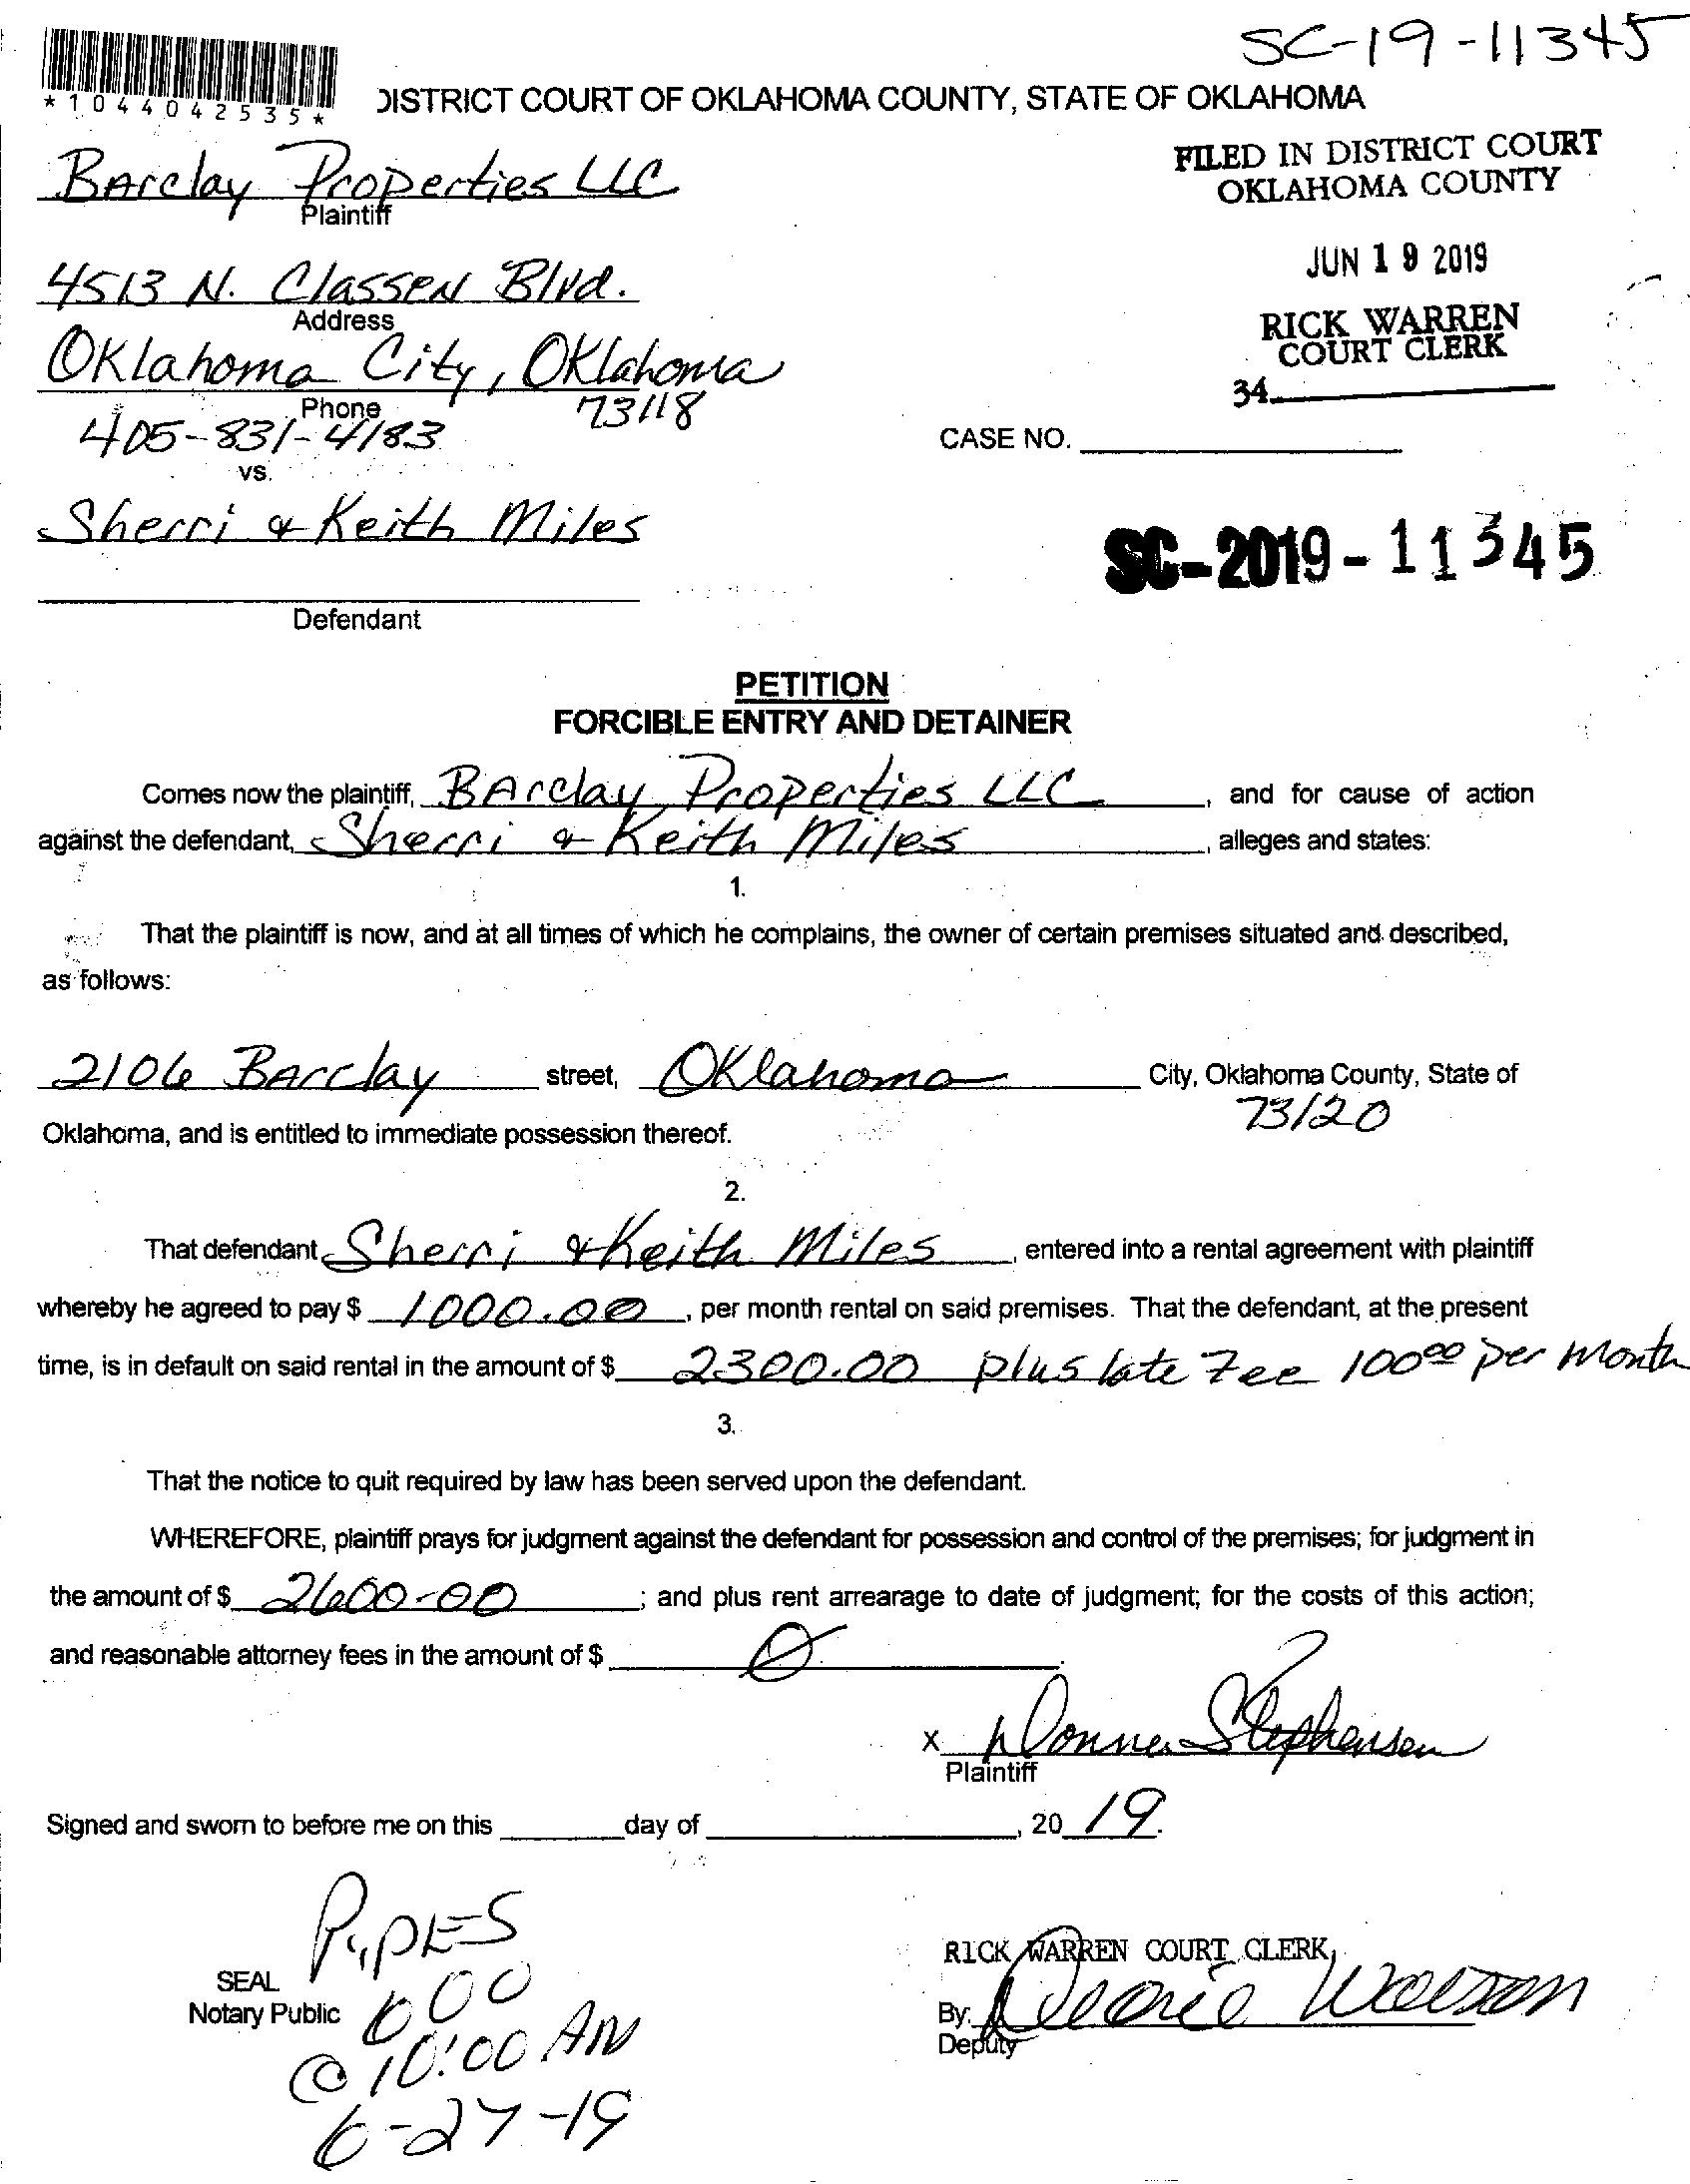 SC-19-11345
*1044042535*
DISTRICT COURT OF OKLAHOMA COUNTY, STATE OF OKLAHOMA
FILED IN DISTRICT COURT
OKLAHOMA COUNTY
JUN 19 2019
RICK WARREN
COURT CLERK
34
Barclay Properties LLC
Plaintiff
4513 N. Classen Blvd.
Address
Oklahoma City, Oklahoma
73118
Phone
405-831-4183
CASE NO.
vs.
Sherri & Keith Miles
SC-2019-11345
Defendant
PETITION
FORCIBLE ENTRY AND DETAINER
Comes now the plaintiff, Barclay Properties LLC, and for cause of action
against the defendant, Sherri & Keith Miles, alleges and states:
1.
That the plaintiff is now, and at all times of which he complains, the owner of certain premises situated and described,
as follows:
2106 Barclay street, Oklahoma City, Oklahoma County, State of
73120
Oklahoma, and is entitled to immediate possession thereof.
2.
That defendant Sherri & Keith Miles, entered into a rental agreement with plaintiff
whereby he agreed to pay $ 1000.00, per month rental on said premises. That the defendant, at the present
time, is in default on said rental in the amount of $ 2300.00 plus late Fee 100.00 per month
3.
That the notice to quit required by law has been served upon the defendant.
WHEREFORE, plaintiff prays for judgment against the defendant for possession and control of the premises; for judgment in
the amount of $ 2600-00; and plus rent arrearage to date of judgment; for the costs of this action;
and reasonable attorney fees in the amount of $ 0.
x Donna Stephenson
Plaintiff
Signed and sworn to before me on this day of , 20 19.
SEAL
Notary Public
600
@ 10:00 AM
6-27-19
RICK WARREN COURT CLERK
By.
Deputy